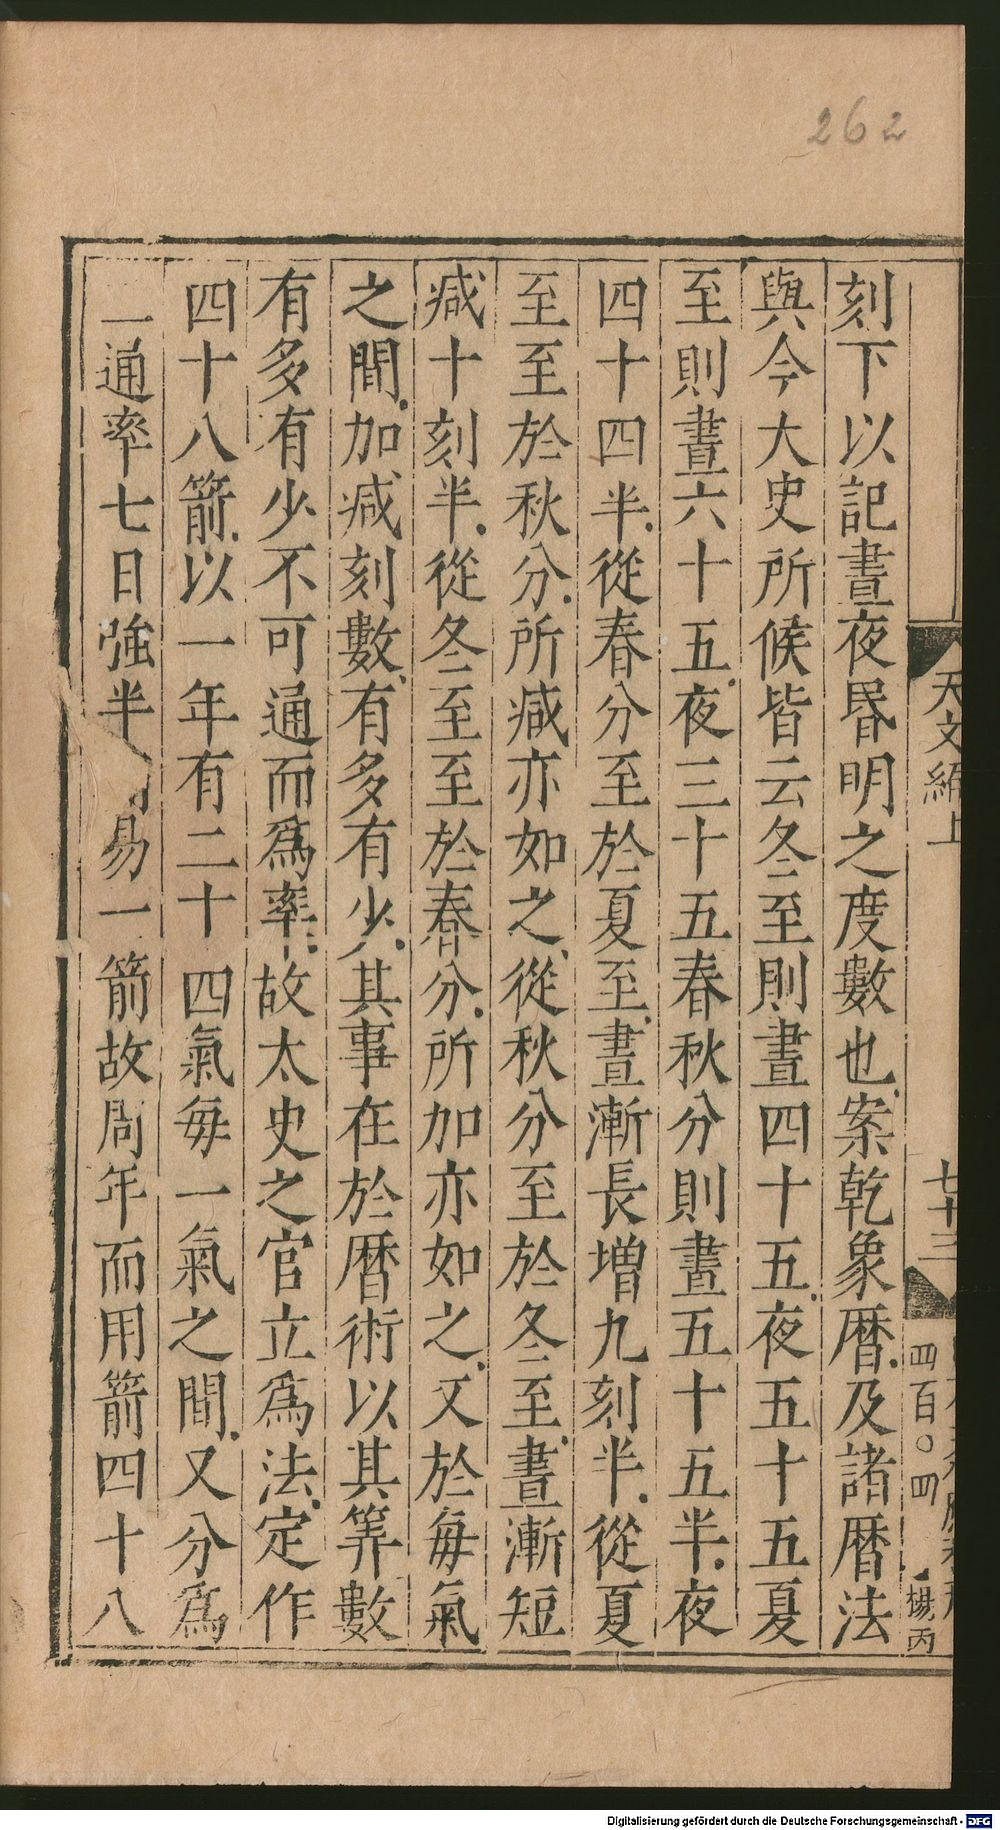 262
刻下以記晝夜昏明之度數也案乾象曆及諸曆法
與今大史所候皆云冬至則晝四十五夜五十五夏
至則晝六十五夜三十五春秋分則晝五十五半夜
四十四半從春分至於夏至晝漸長增九刻半從夏
至至於秋分所減亦如之從秋分至於冬至晝漸短
減十刻半從冬至至於春分所加亦如之又於每氣
之間加減刻數有多有少其事在於曆術以其筭數
有多有少不可通而爲率故太史之官立爲法定作
四十八箭以一年有二十四氣每一氣之間又分爲
二通率七日強半易一箭故周年而用箭四十八
天文編上
七十三
四百〇四
楊丙
Digitalisierung gefördert durch die Deutsche Forschungsgemeinschaft - DFG